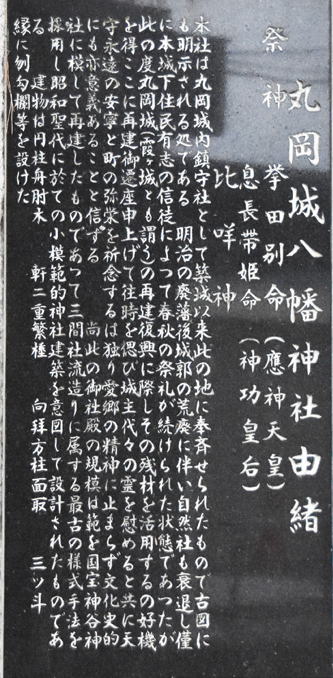 丸岡城八幡神社由緒
祭神
挙田別命(應神天皇)
息長帯姫命(神功皇后)
比咩神
本社は丸岡城内鎮守社として築城以来此の地に奉斉せられたもので古図に
も明示される処である 明治の廃藩後城郭の荒廃に伴い自然社も衰退し僅
に本城下住民有志の信徒によって春秋の祭礼が続けられた状態であつたが
此の度丸岡城(霞ヶ城とも謂う)の再建復興に際しその残材を活用するの好機
を得ここに再建御遷座申上げて往時を偲び城主代々の霊を慰めると共に天
守永遠の安寧と町の弥栄を祈念するは独り愛郷の精神に止まらず文化史的
にも亦意義あることと信ずる 尚此の御社殿の規模は範を国宝神谷神
社に模して再建したものであつて三間社流造りに属する最古の様式手法を
採用し昭和聖代に於ての小模範的神社建築を意図して設計されたものであ
る 建物は円柱舟肘木 軒二重繁棰 向拜方柱面取 三ツ斗
縁に刎勾欄等を設けた